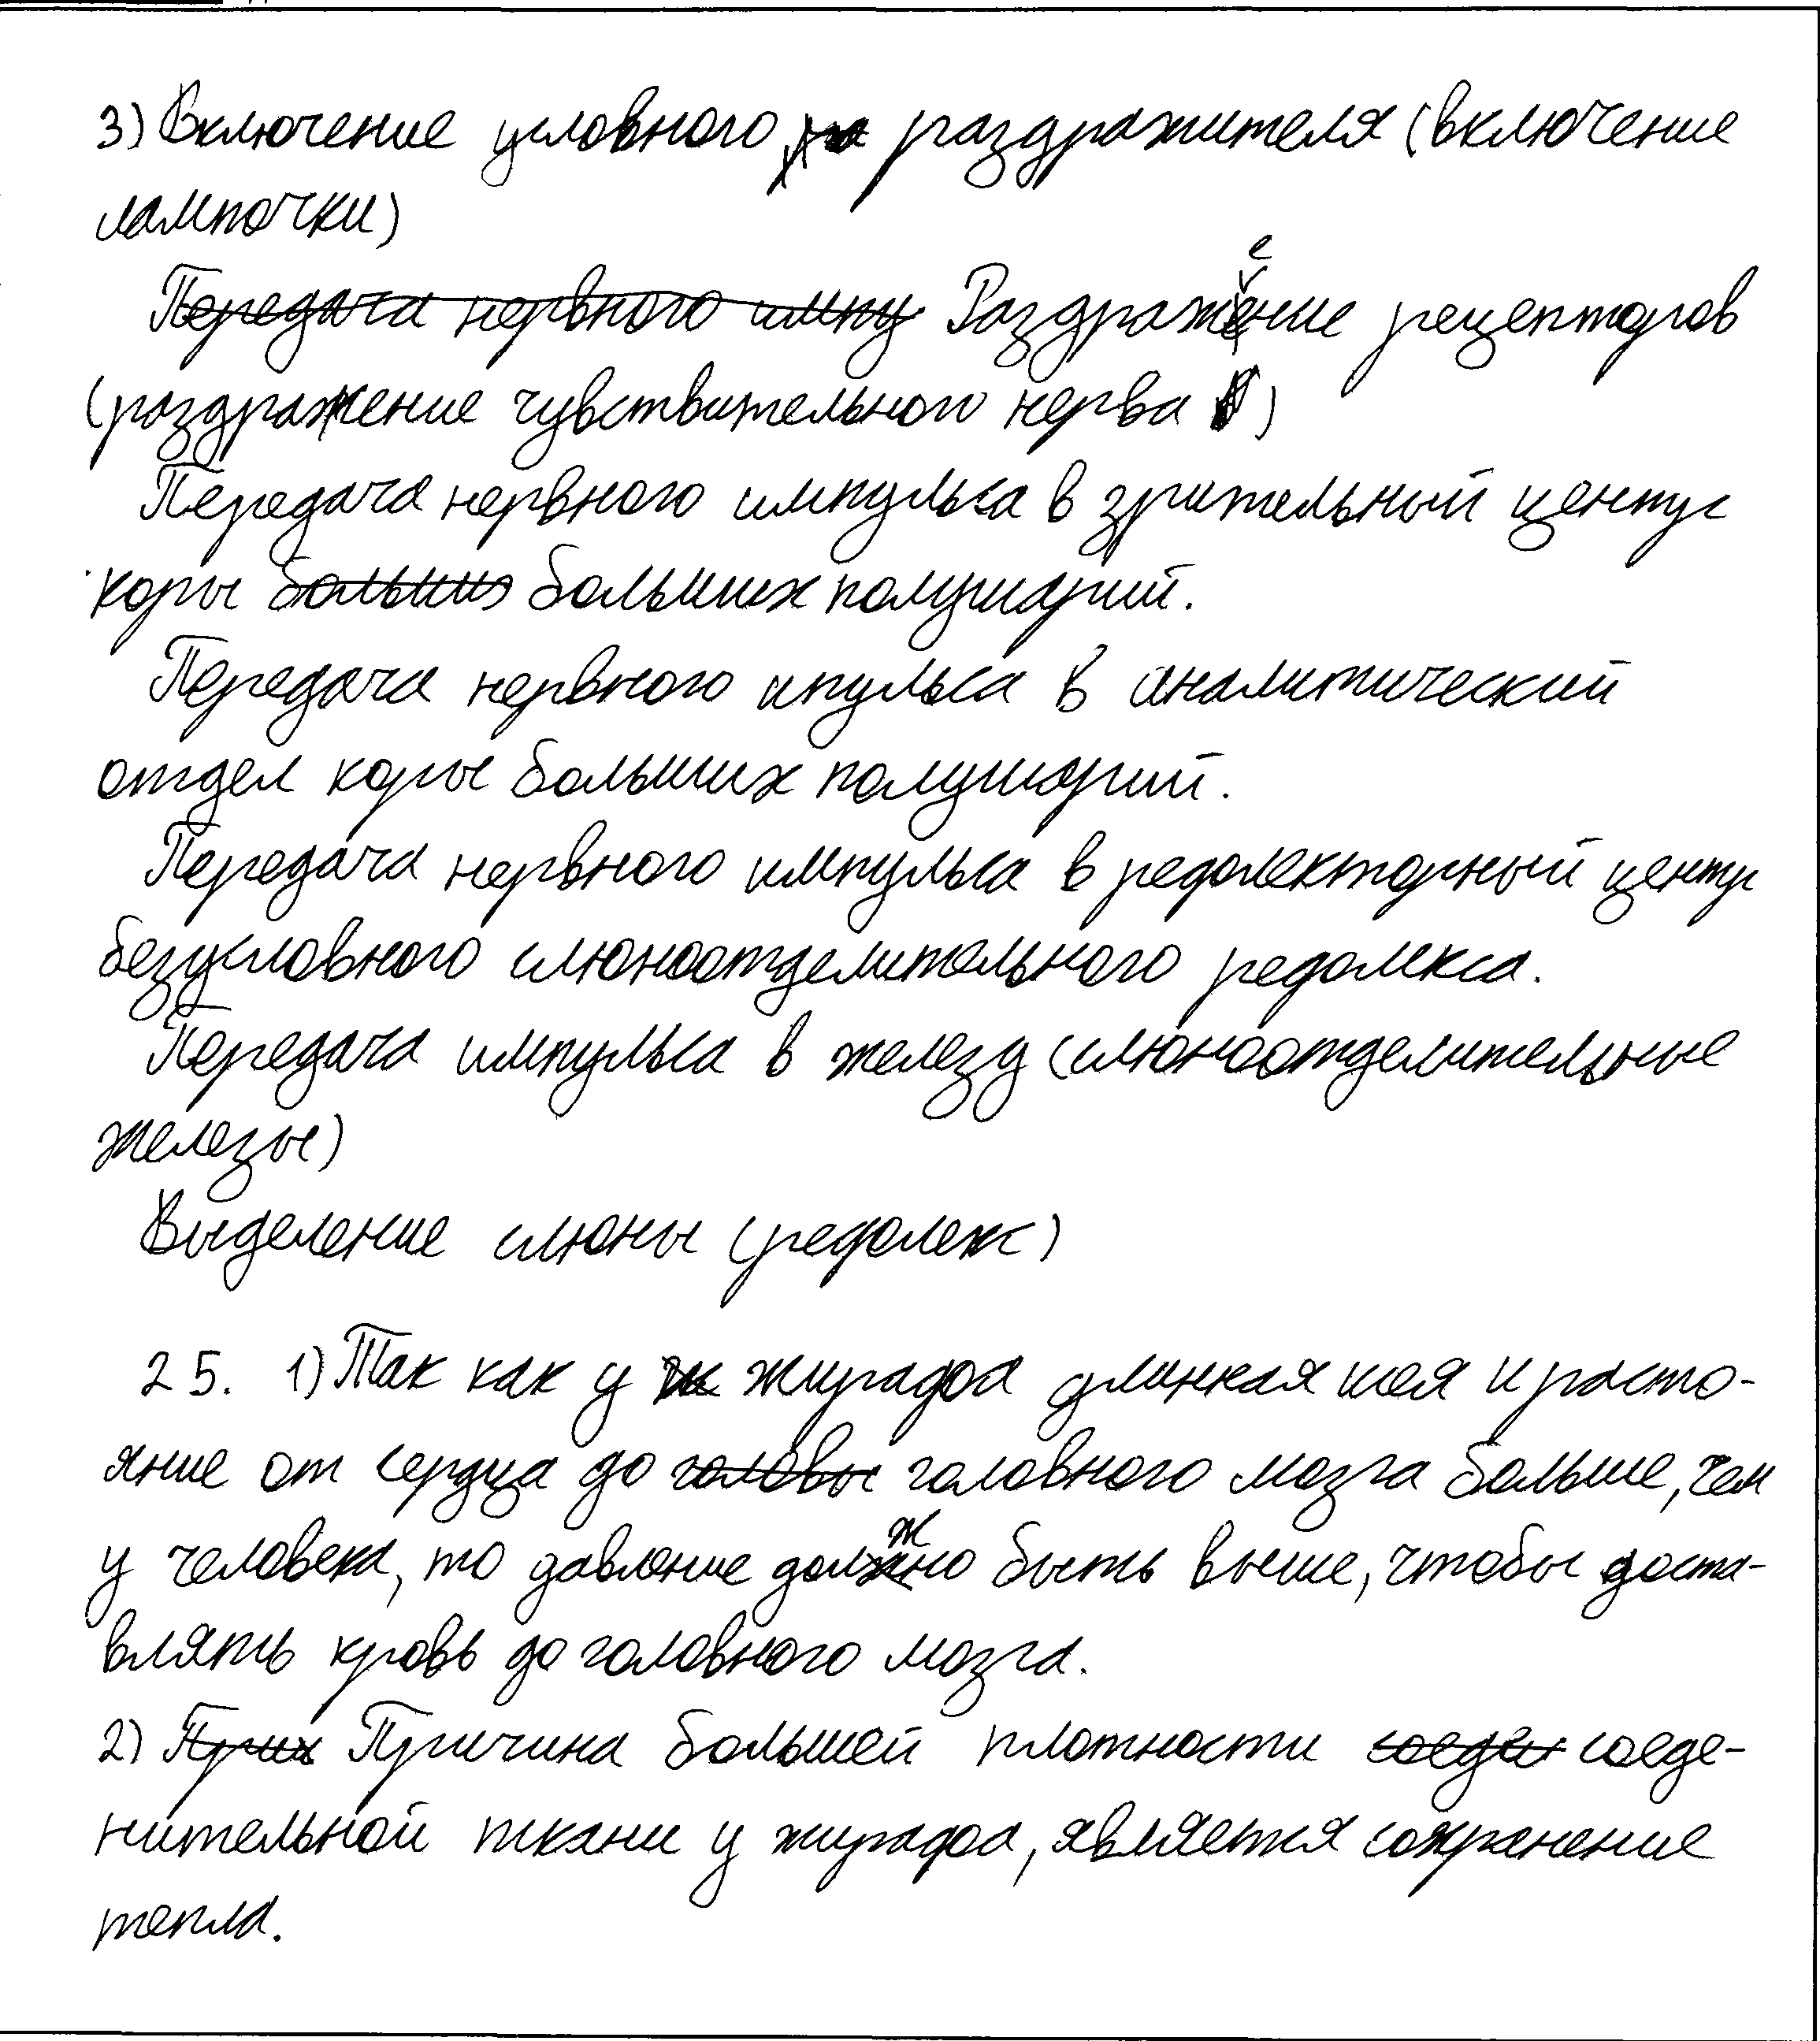 3) Включение условного раздражителя (включение
лампочки)
Передача нервного импу Раздражение рецепторов
(раздражение чувствительного нерва)
Передача нервного импульса в зрительный центр
коры больших больших полушарий.
Передача нервного ипульса в аналитический
отдел коры больших полушарий.
Передача нервного импульса в рефлекторный центр
безусловного слюноотделительного рефлекса.
Передача импульса в железу (слюноотделительные
железы)
Выделение слюны (рефлекс)
25. 1) Так как у жирафа длинная шея и расто-
яние от сердца до головы головного мозга больше, чем
у человека, то давление должно быть выше, чтобы доста-
влять кровь до головного мозга.
2) Причина большей плотности соеди соеде-
нительной ткани у жирафа, является сохранение
тепла.